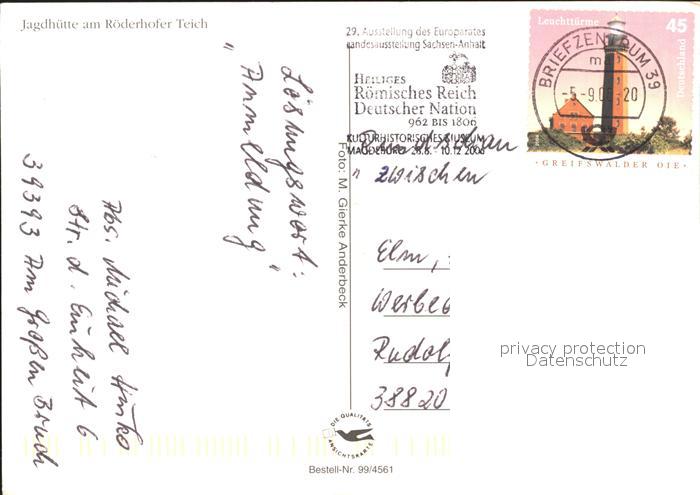 Jagdhütte am Röderhofer Teich
29. Ausstellung des Europarates
Landesausstellung Sachsen-Anhalt
HEILIGES
Römisches Reich
Deutscher Nation
962 BIS 1806
KULTURHISTORISCHES MUSEUM
MAGDEBURG 28.8. - 10.12.2006
BRIEFZENTRUM 39
-5.-9.06-20
Leuchttürme
45
Deutschland
· GREIFSWALDER OIE ·
Lösungswort:
„Anmeldung"
Abs. Michael
Str. d. Einheit 6
39393 Am Großen Bruch
Foto: M. Gierke Anderbeck
„ zwischen
Elm,
Werbe
Rudol
38820
privacy protection
Datenschutz
DIE QUALITÄTS
ANSICHTSKARTE
Bestell-Nr. 99/4561